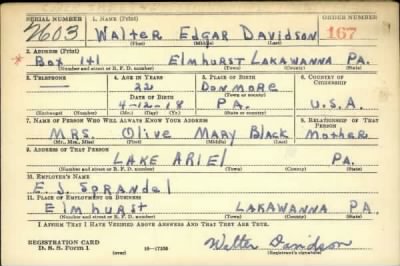 SERIAL NUMBER 1. NAME (Print) ORDER NUMBER
2603 Walter Edgar Davidson 167
(First) (Middle) (Last)
2. ADDRESS (Print)
Box 141 Elmhurst Lakawanna Pa.
(Number and street or R. F. D. number) (Town) (County) (State)
3. TELEPHONE 4. AGE IN YEARS 5. PLACE OF BIRTH 6. COUNTRY OF CITIZENSHIP
— 22 Donmore
DATE OF BIRTH (Town or county)
4-12-18 PA. U.S.A.
(Exchange) (Number) (Mo.) (Day) (Yr.) (State or country)
7. NAME OF PERSON WHO WILL ALWAYS KNOW YOUR ADDRESS 8. RELATIONSHIP OF THAT PERSON
MRS. Olive Mary Black Mother
(Mr., Mrs., Miss) (First) (Middle) (Last)
9. ADDRESS OF THAT PERSON
LAKE ARIEL PA.
(Number and street or R. F. D. number) (Town) (County) (State)
10. EMPLOYER'S NAME
E. J. Sprandel
11. PLACE OF EMPLOYMENT OR BUSINESS
Elmhurst LAKAWANNA PA.
(Number and street or R. F. D. number) (Town) (County) (State)
I AFFIRM THAT I HAVE VERIFIED ABOVE ANSWERS AND THAT THEY ARE TRUE.
REGISTRATION CARD
D. S. S. Form 1 (over) 16—17105 Walter Davidson
(Registrant's signature)